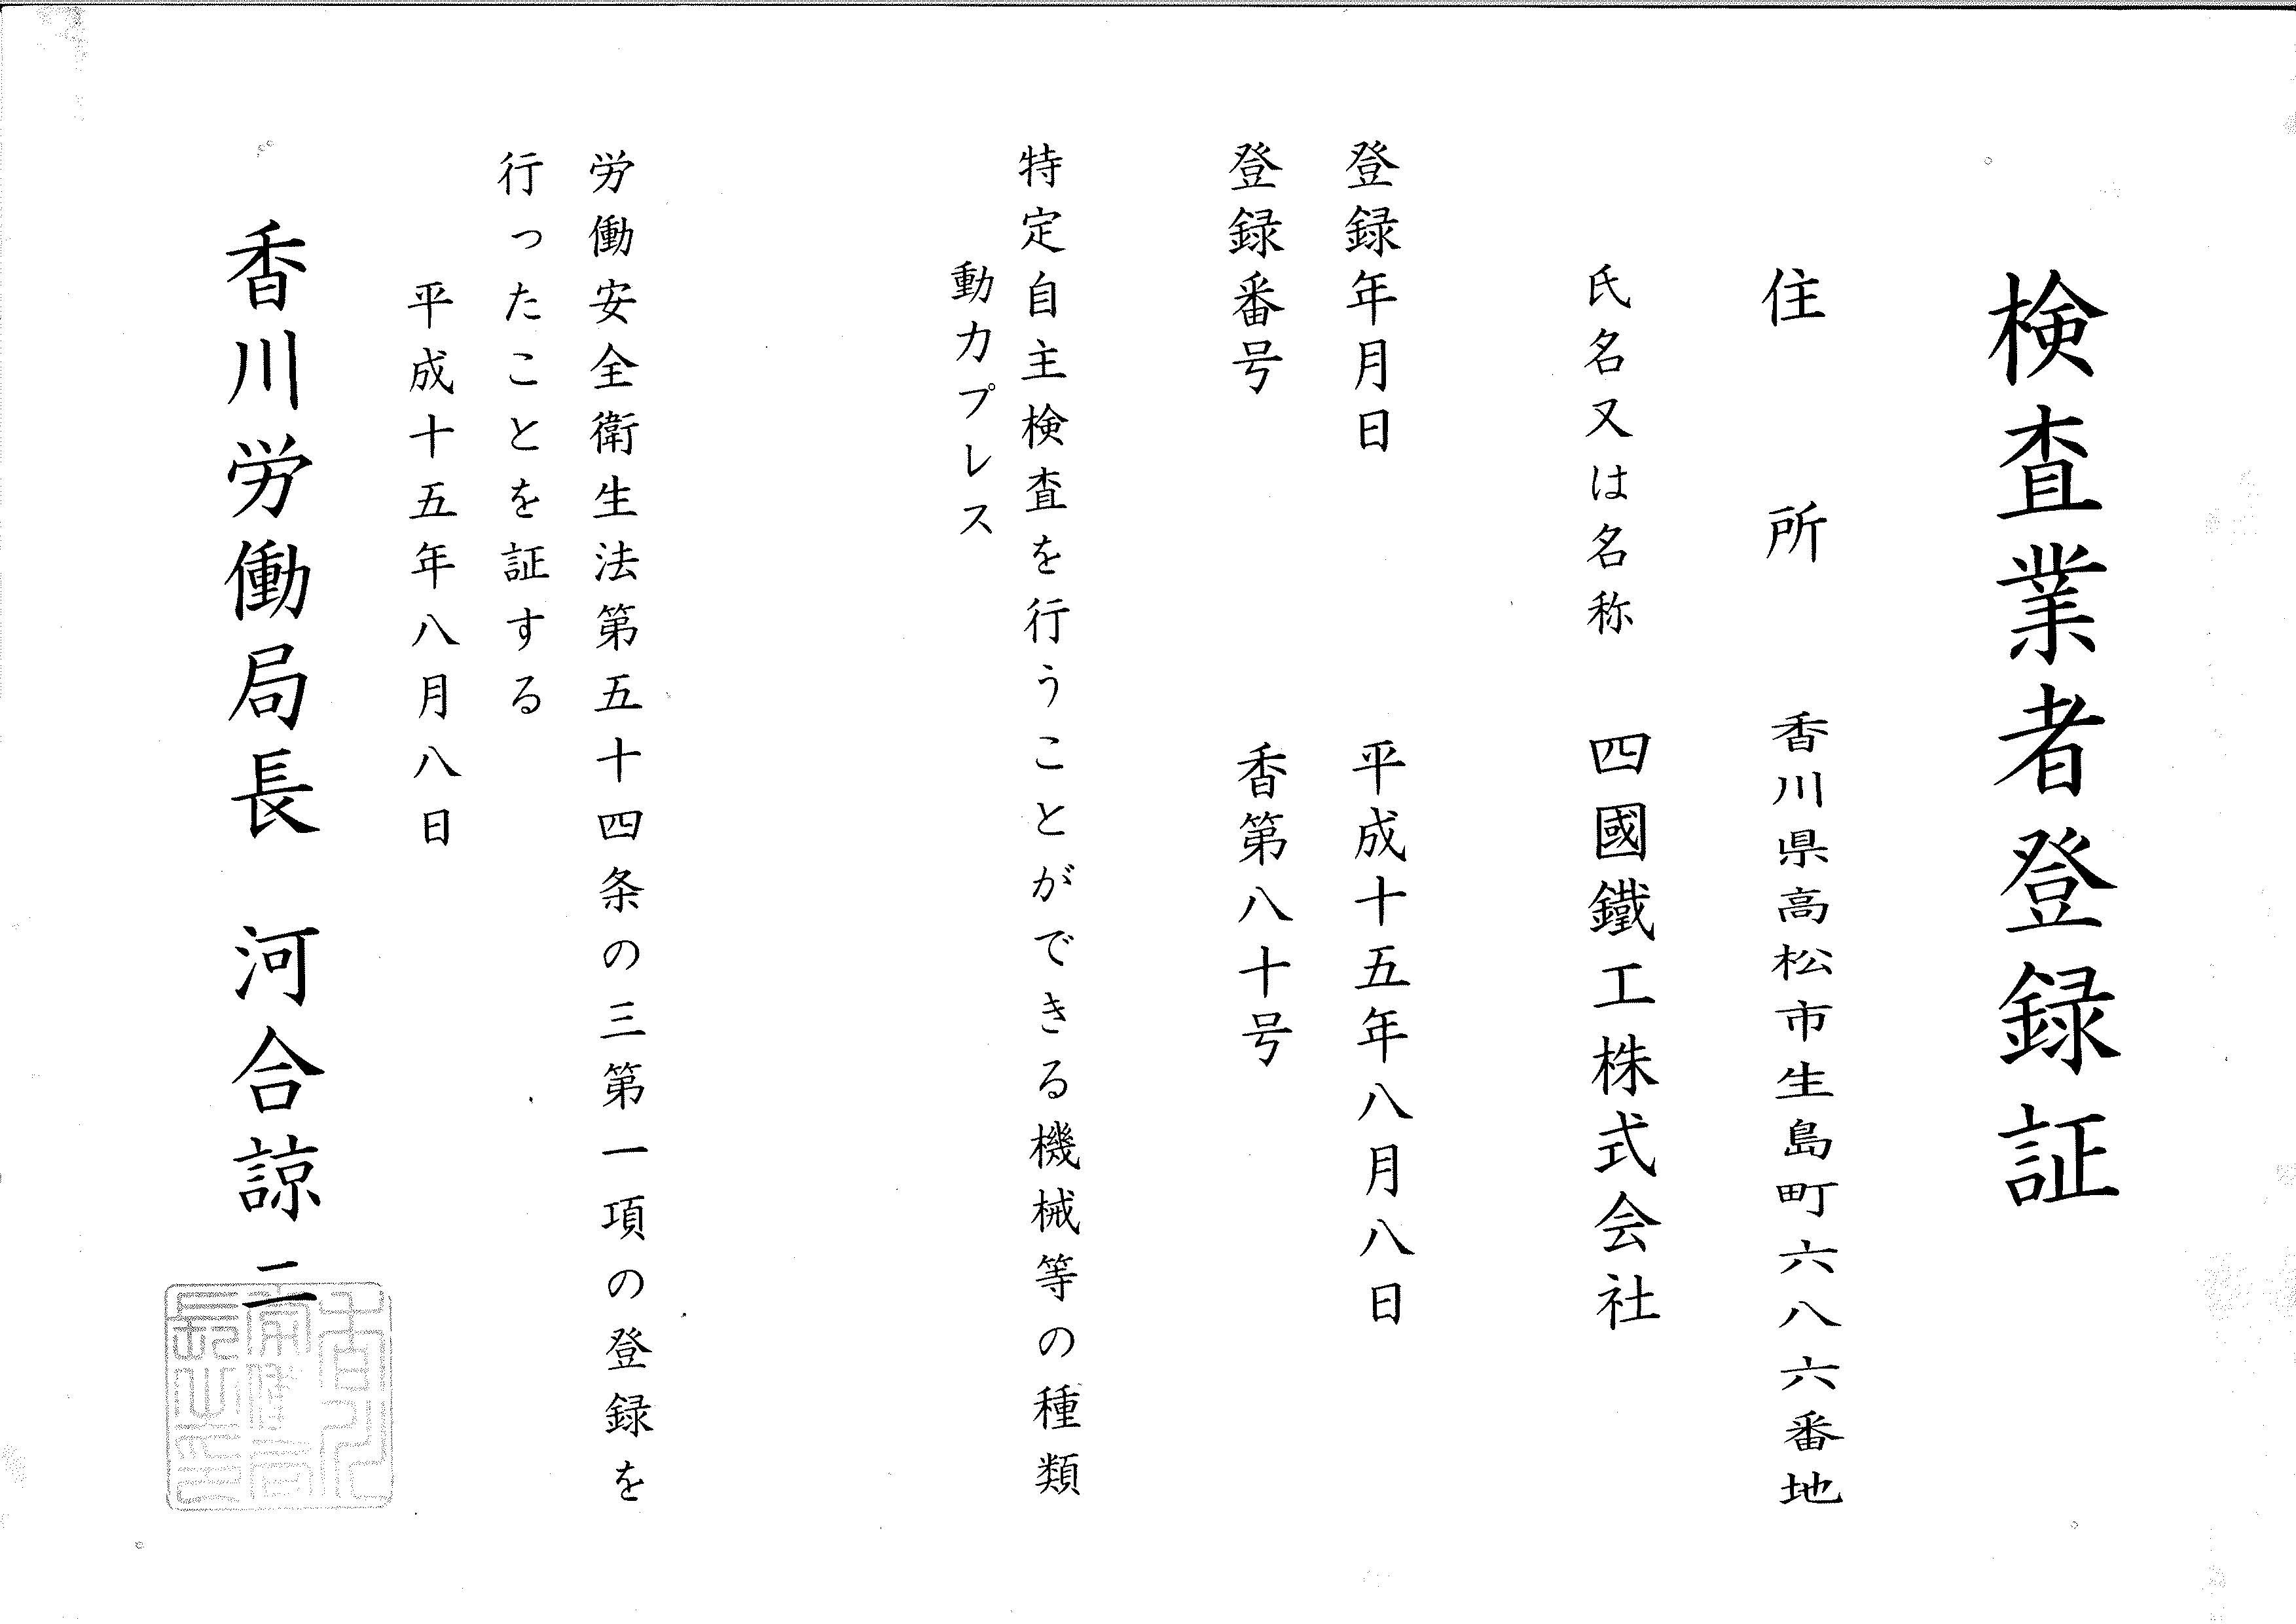 検査業者登録証
住所 香川県高松市生島町六八六番地
氏名又は名称 四國鐵工株式会社
登録年月日 平成十五年八月八日
登録番号 香第八十号
特定自主検査を行うことができる機械等の種類
動力プレス
労働安全衛生法第五十四条の三第一項の登録を
行ったことを証する
平成十五年八月八日
香川労働局長 河合諒二